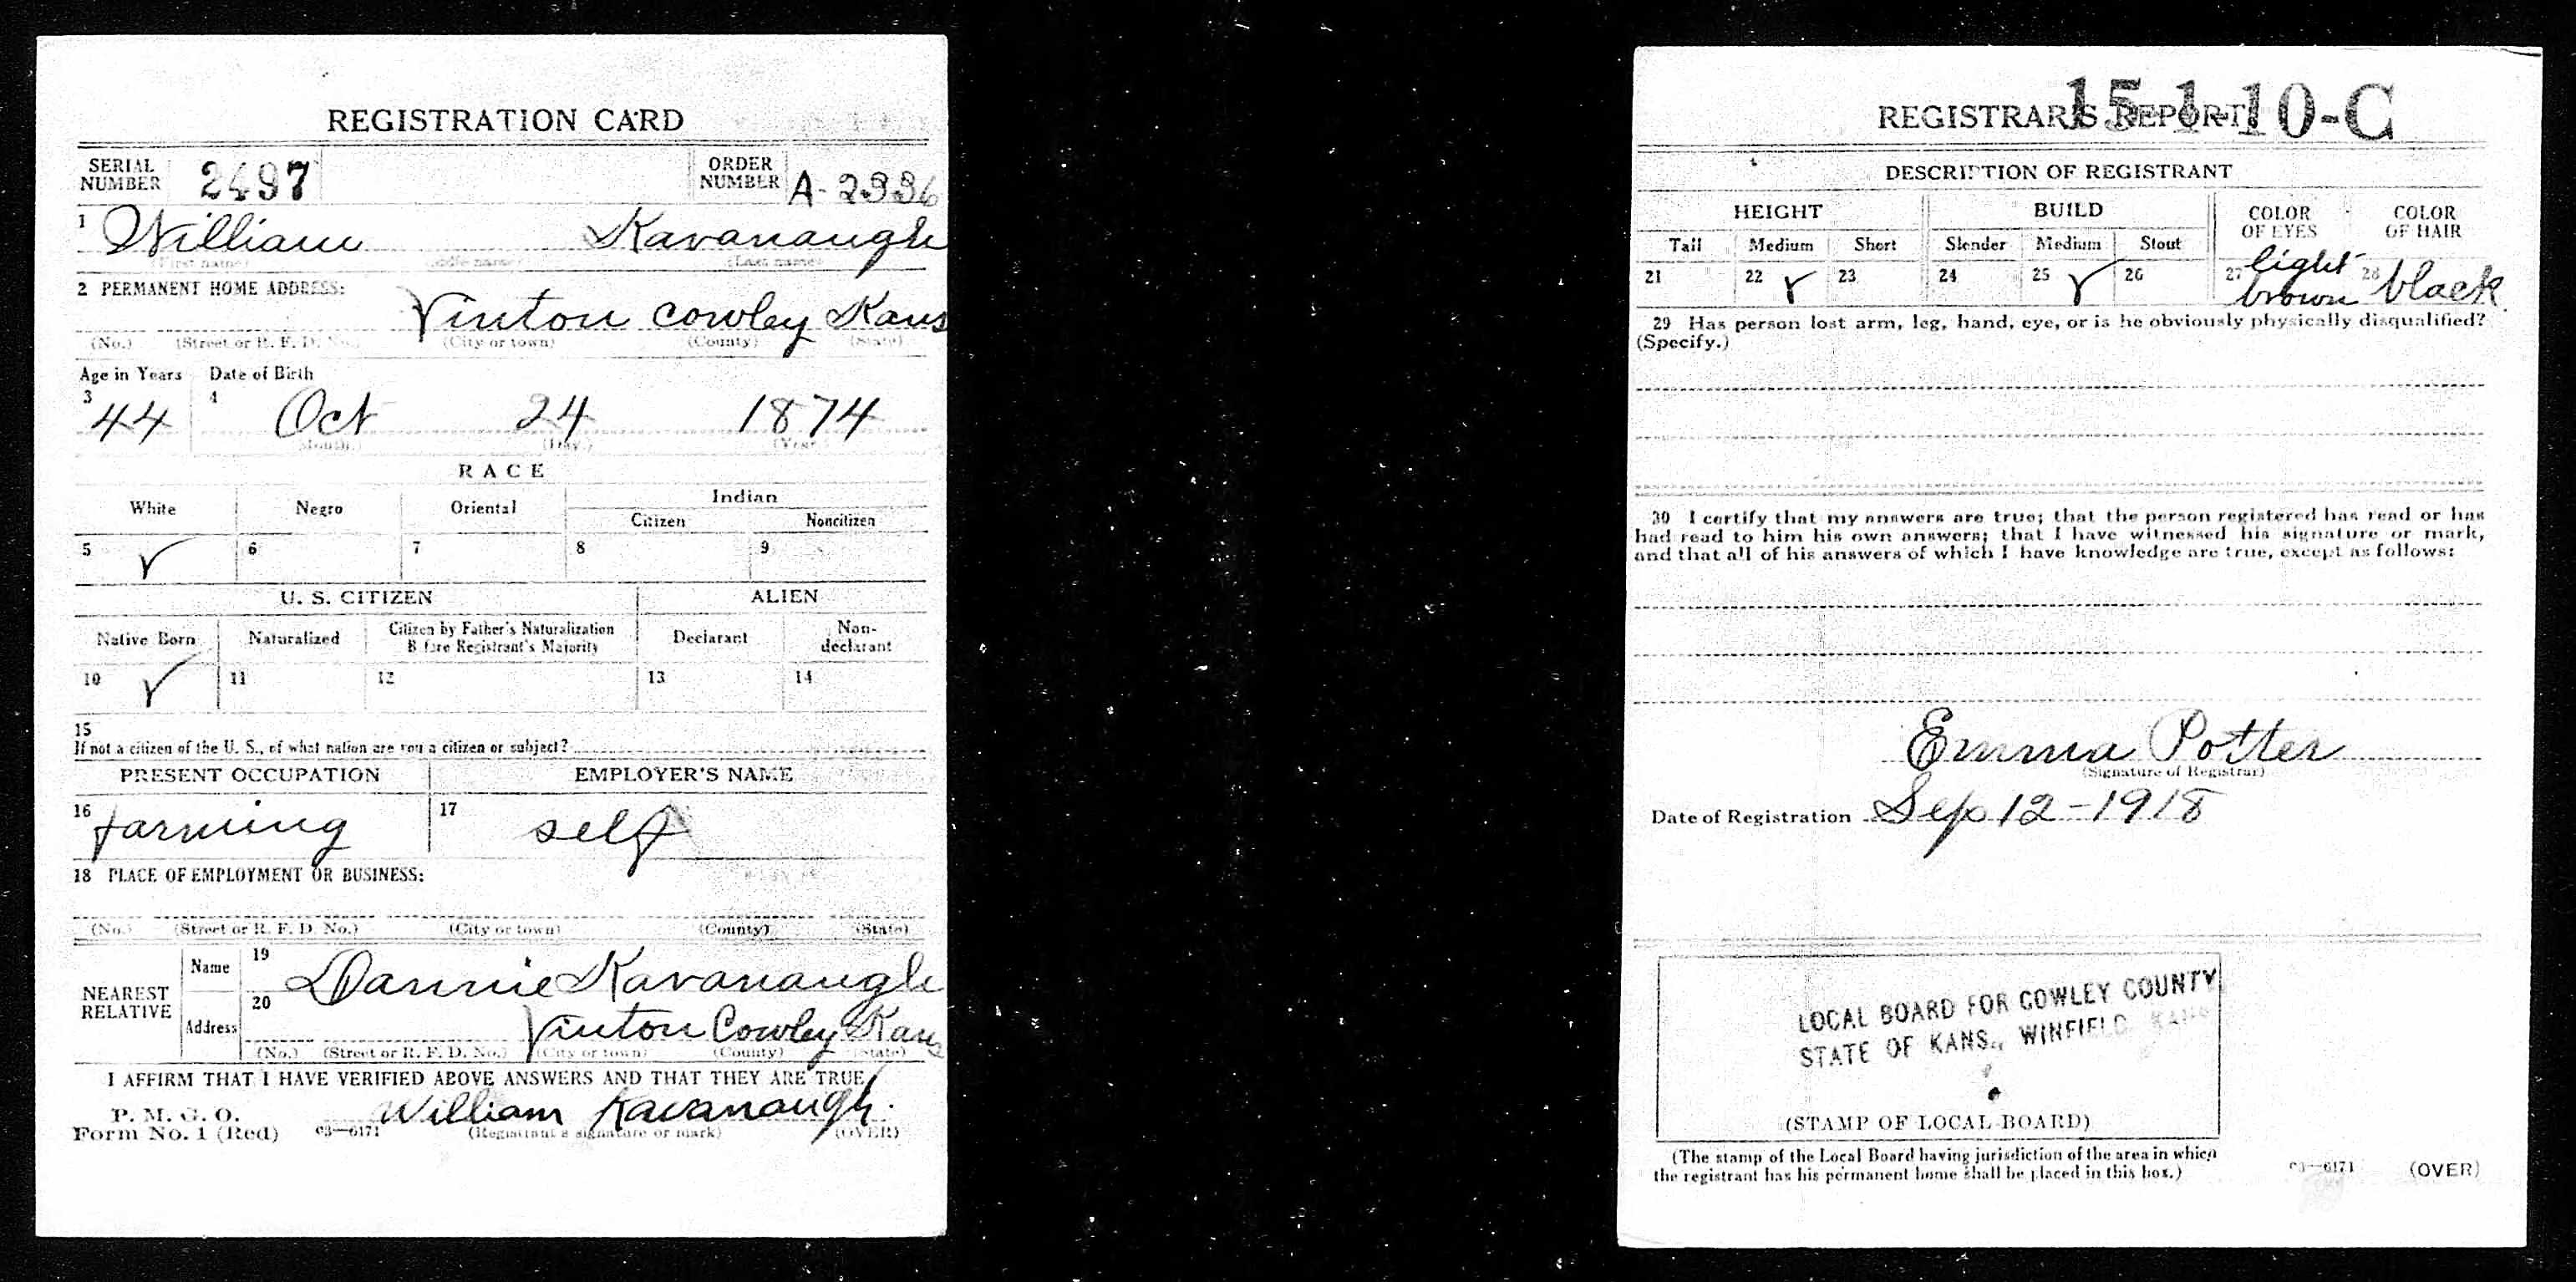 REGISTRATION CARD
SERIAL NUMBER 2497 ORDER NUMBER A-2336
1 William Kavanaugh
(First name) (Middle name) (Last name)
2 PERMANENT HOME ADDRESS:
Vinton Cowley Kans
(No.) (Street or R. F. D. No.) (City or town) (County) (State)
Age in Years Date of Birth
3 44 4 Oct 24 1874
(Month.) (Day.) (Year.)
RACE
White Negro Oriental Indian
Citizen Noncitizen
5 ✓ 6 7 8 9
U. S. CITIZEN ALIEN
Native Born Naturalized Citizen by Father's Naturalization Before Registrant's Majority Declarant Non-declarant
10 ✓ 11 12 13 14
15
If not a citizen of the U. S., of what nation are you a citizen or subject?
PRESENT OCCUPATION EMPLOYER'S NAME
16 farming 17 self
18 PLACE OF EMPLOYMENT OR BUSINESS:
(No.) (Street or R. F. D. No.) (City or town) (County) (State)
NEAREST RELATIVE Name 19 Dannie Kavanaugh
Address 20 Vinton Cowley Kans
(No.) (Street or R. F. D. No.) (City or town) (County) (State)
I AFFIRM THAT I HAVE VERIFIED ABOVE ANSWERS AND THAT THEY ARE TRUE
P. M. G. O.
Form No. 1 (Red) c3—6171 William Kavanaugh.
(Registrant's signature or mark) (OVER)
REGISTRAR'S REPORT
15-1-10-C
DESCRIPTION OF REGISTRANT
HEIGHT BUILD COLOR OF EYES COLOR OF HAIR
Tall Medium Short Slender Medium Stout
21 22 ✓ 23 24 25 ✓ 26 27 light brown 28 black
29 Has person lost arm, leg, hand, eye, or is he obviously physically disqualified?
(Specify.)
30 I certify that my answers are true; that the person registered has read or has
had read to him his own answers; that I have witnessed his signature or mark,
and that all of his answers of which I have knowledge are true, except as follows:
Emma Potter
(Signature of Registrar)
Date of Registration Sep 12-1918
LOCAL BOARD FOR COWLEY COUNTY
STATE OF KANS., WINFIELD KANS
(STAMP OF LOCAL BOARD)
(The stamp of the Local Board having jurisdiction of the area in which
the registrant has his permanent home shall be placed in this box.)
c3—6171 (OVER)